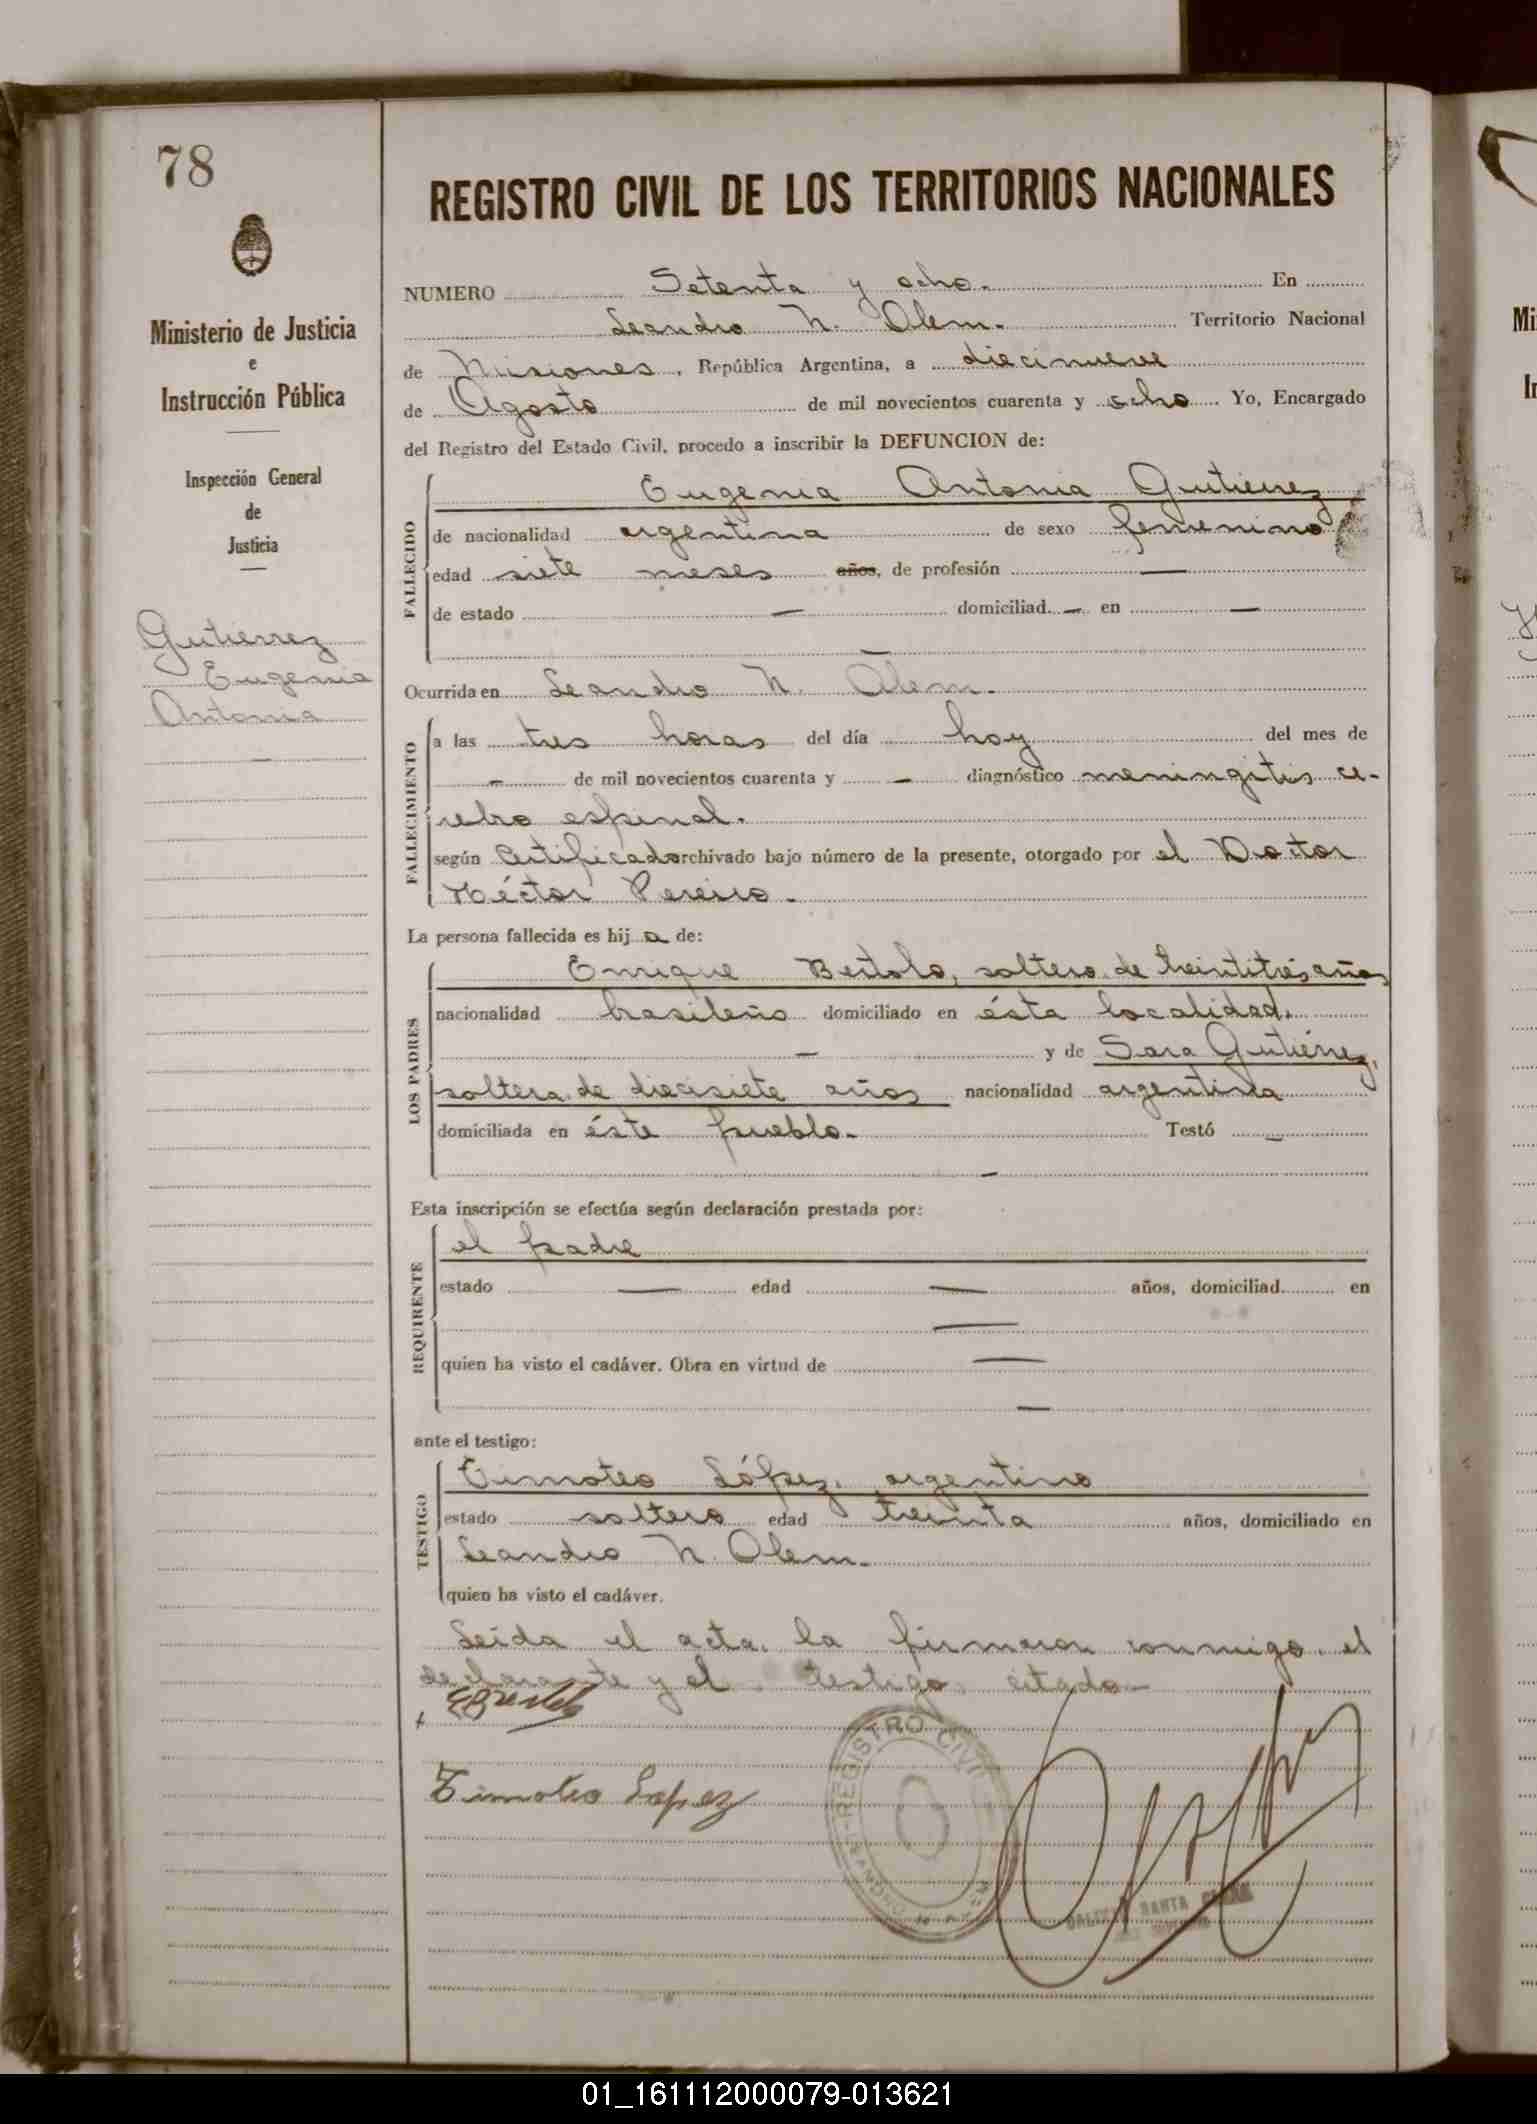 78
REGISTRO CIVIL DE LOS TERRITORIOS NACIONALES
Ministerio de Justicia
e
Instrucción Pública
Inspección General
de
Justicia
Gutierrez
Eugenia
Antonia
NUMERO Setenta y ocho. En
Leandro N. Alem. Territorio Nacional
de Misiones, República Argentina, a diecinueve
de Agosto de mil novecientos cuarenta y ocho Yo, Encargado
del Registro del Estado Civil, procedo a inscribir la DEFUNCION de:
FALLECIDO
Eugenia Antonia Gutiérrez
de nacionalidad argentina de sexo femenino
edad siete meses años, de profesión —
de estado — domiciliad — en —
—
Ocurrida en Leandro N. Alem.
FALLECIMIENTO
a las tres horas del día hoy del mes de
— de mil novecientos cuarenta y — diagnóstico meningitis ce-
rebro espinal.
según certificado archivado bajo número de la presente, otorgado por el Doctor
Héctor Pereiro.
La persona fallecida es hija de:
LOS PADRES
Enrique Bertolo, soltero de veintitrés años
nacionalidad brasileño domiciliado en ésta localidad.
— y de Sara Gutiérrez,
soltera de diecisiete años nacionalidad argentina
domiciliada en éste pueblo. Testó —
—
Esta inscripción se efectúa según declaración prestada por:
REQUIRENTE
el padre
estado — edad — años, domiciliad en
—
quien ha visto el cadáver. Obra en virtud de —
—
ante el testigo:
TESTIGO
Timoteo López, argentino
estado soltero edad treinta años, domiciliado en
Leandro N. Alem.
quien ha visto el cadáver.
Leída el acta, la firmaron conmigo, el
declarante y el testigo citado.
Timoteo Lopez
REGISTRO CIVIL
LEANDRO N. ALEM
SANTA
01_161112000079-013621